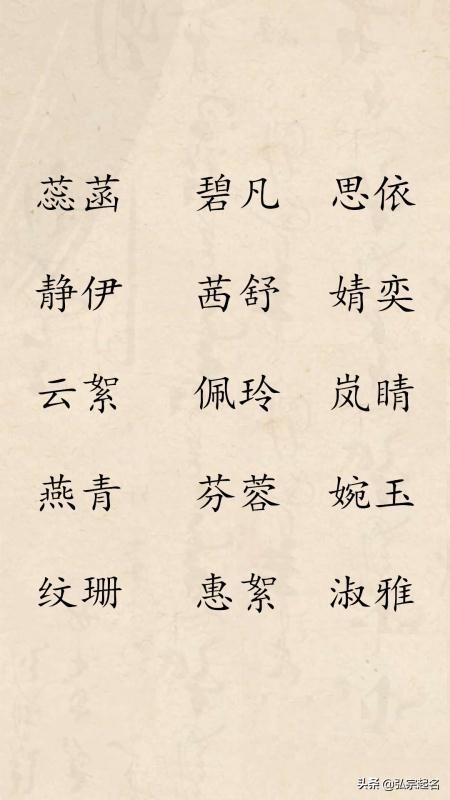 蕊菡 碧凡 思依
静伊 茜舒 婧奕
云絮 佩玲 岚晴
燕青 芬蓉 婉玉
纹珊 惠絮 淑雅
头条 @弘宗起名